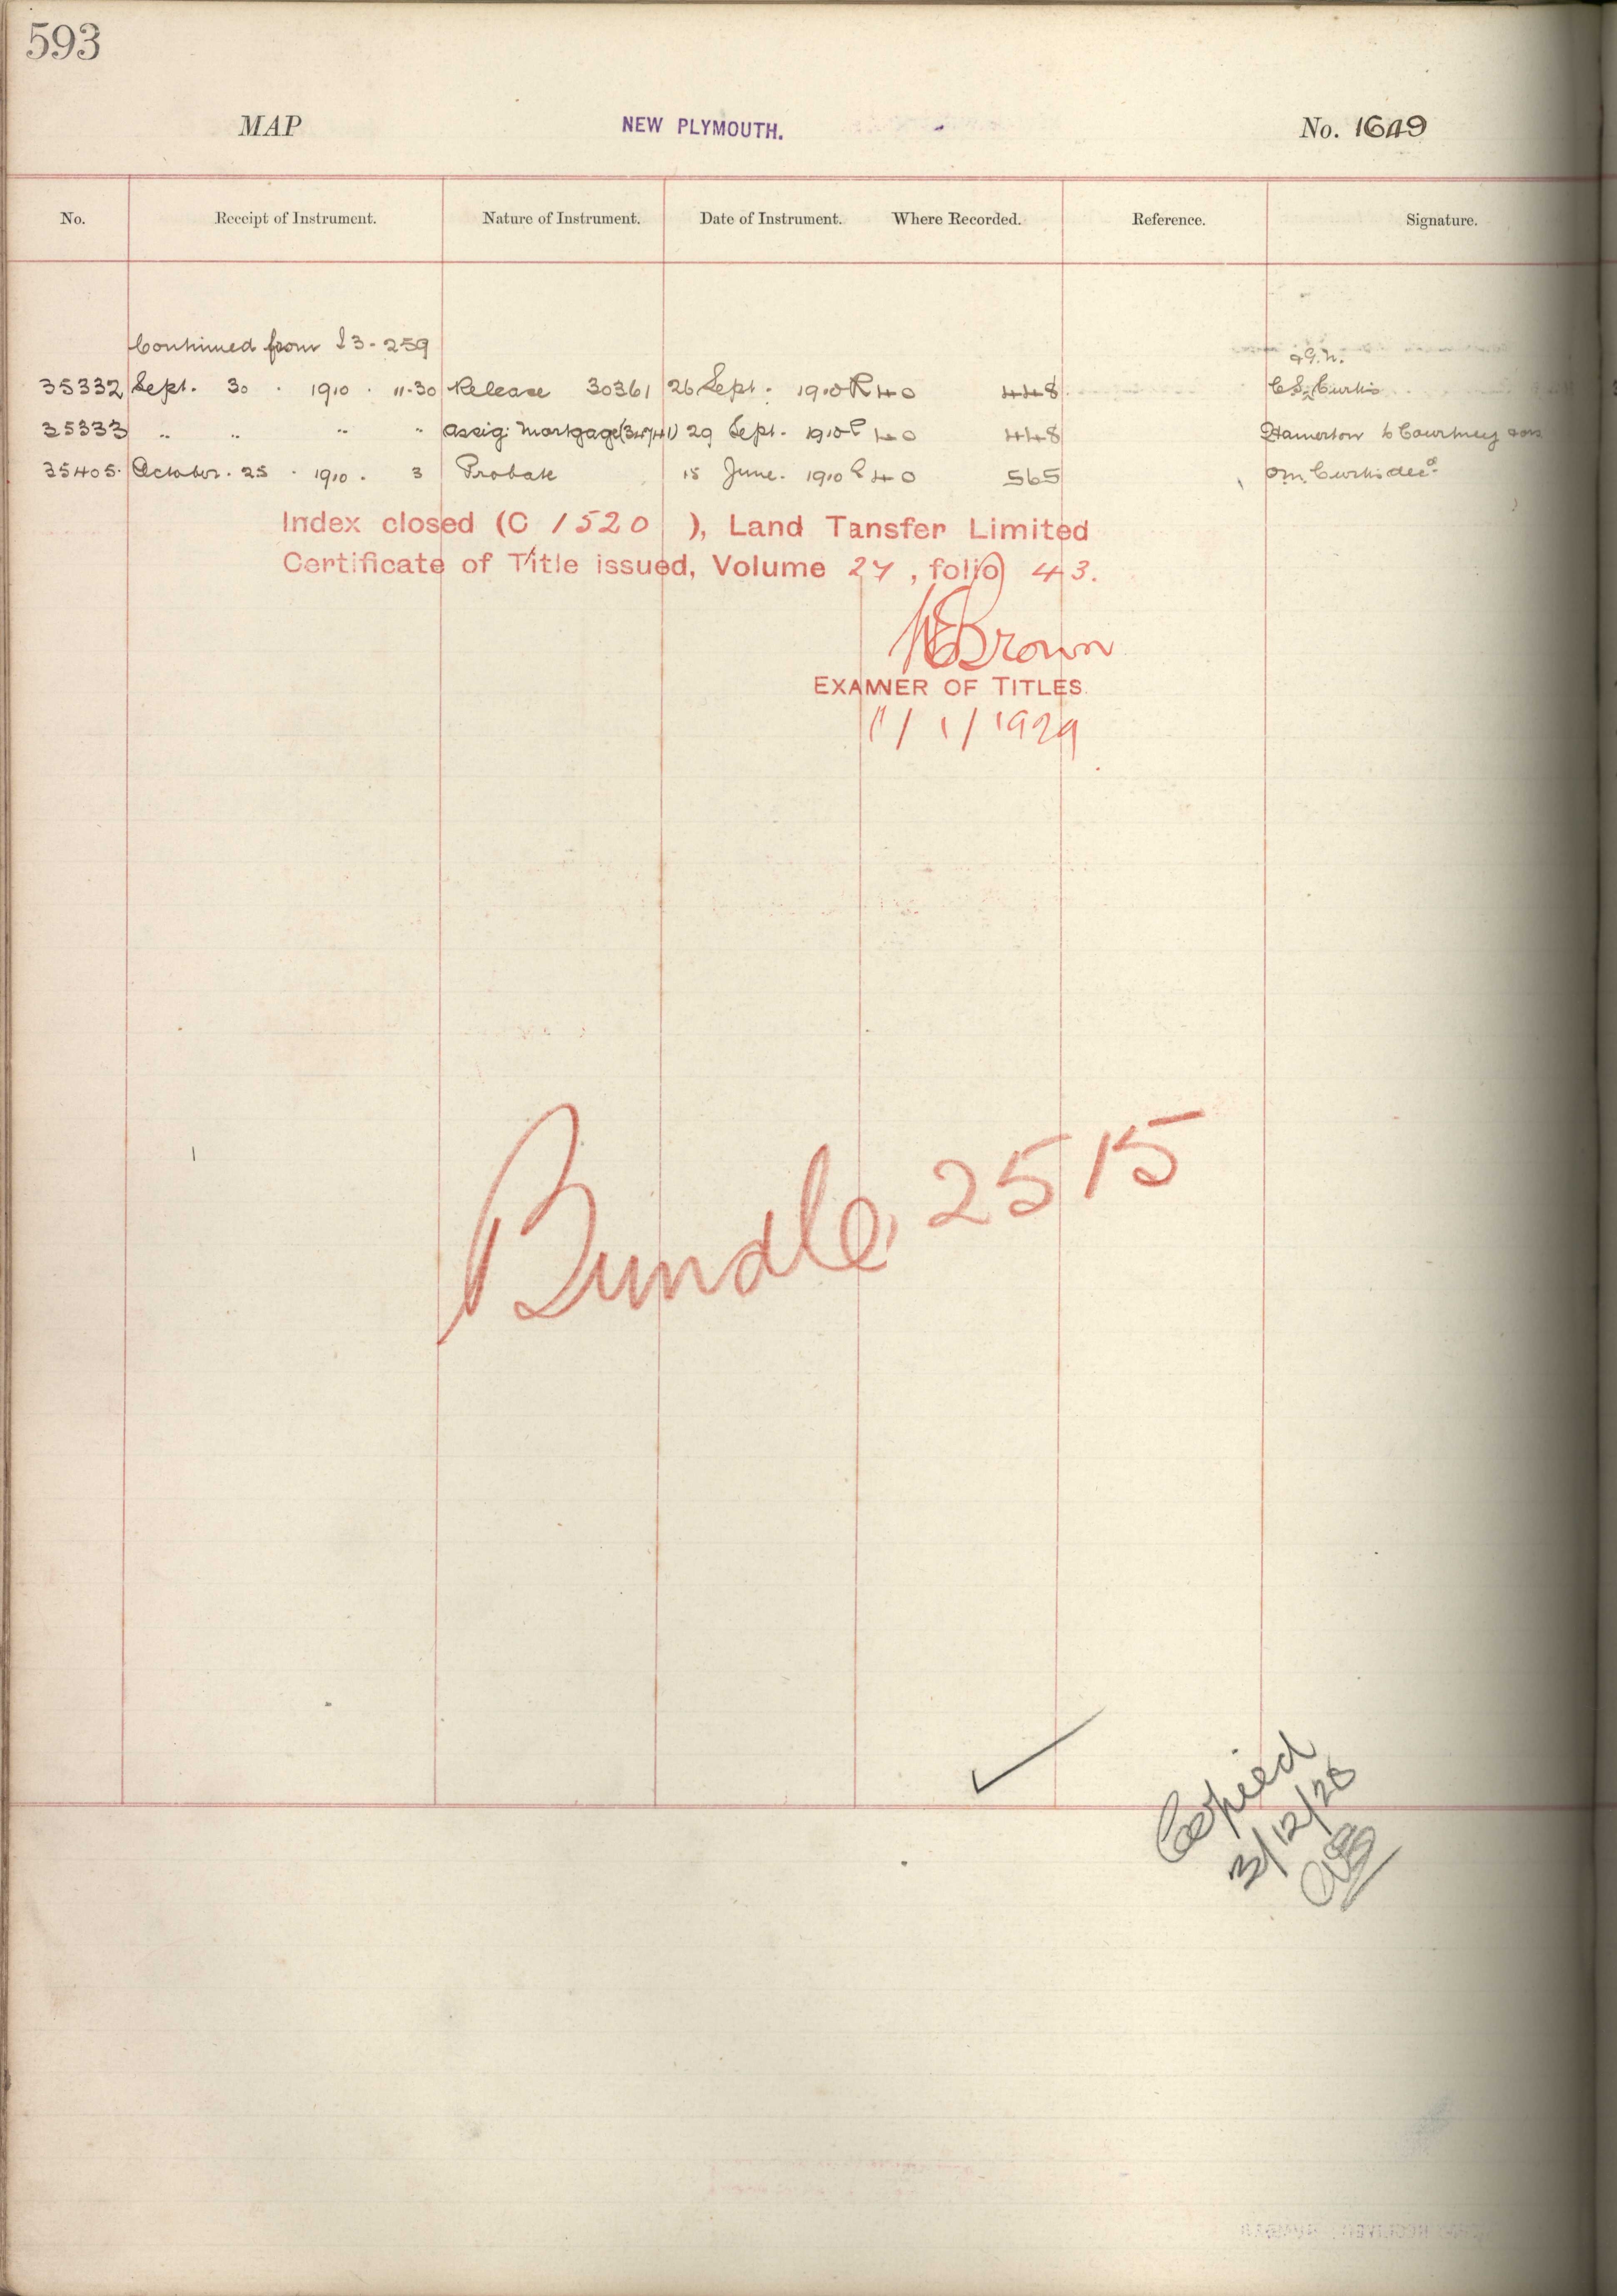 593
MAP NEW PLYMOUTH. No. 1649
No. Receipt of Instrument. Nature of Instrument. Date of Instrument. Where Recorded. Reference. Signature.
Continued from I3-259
35332 Sept. 30 · 1910 · 11-30 Release 30361 26 Sept. 1910 R 40 448 C S. Curtis
35333 " " " " Assig: Mortgage (34741) 29 Sept. 1910 R 40 448 Hamerton to Courtney
35405. October. 25 · 1910. 3 Probate 15 June. 1910 R 40 565 O.M. Curtis decd.
Index closed (C 1520 ), Land Tansfer Limited
Certificate of Title issued, Volume 27, folio 43.
Brown
EXAMNER OF TITLES.
11/1/1929
Bundle, 2515
Copied
3/12/28